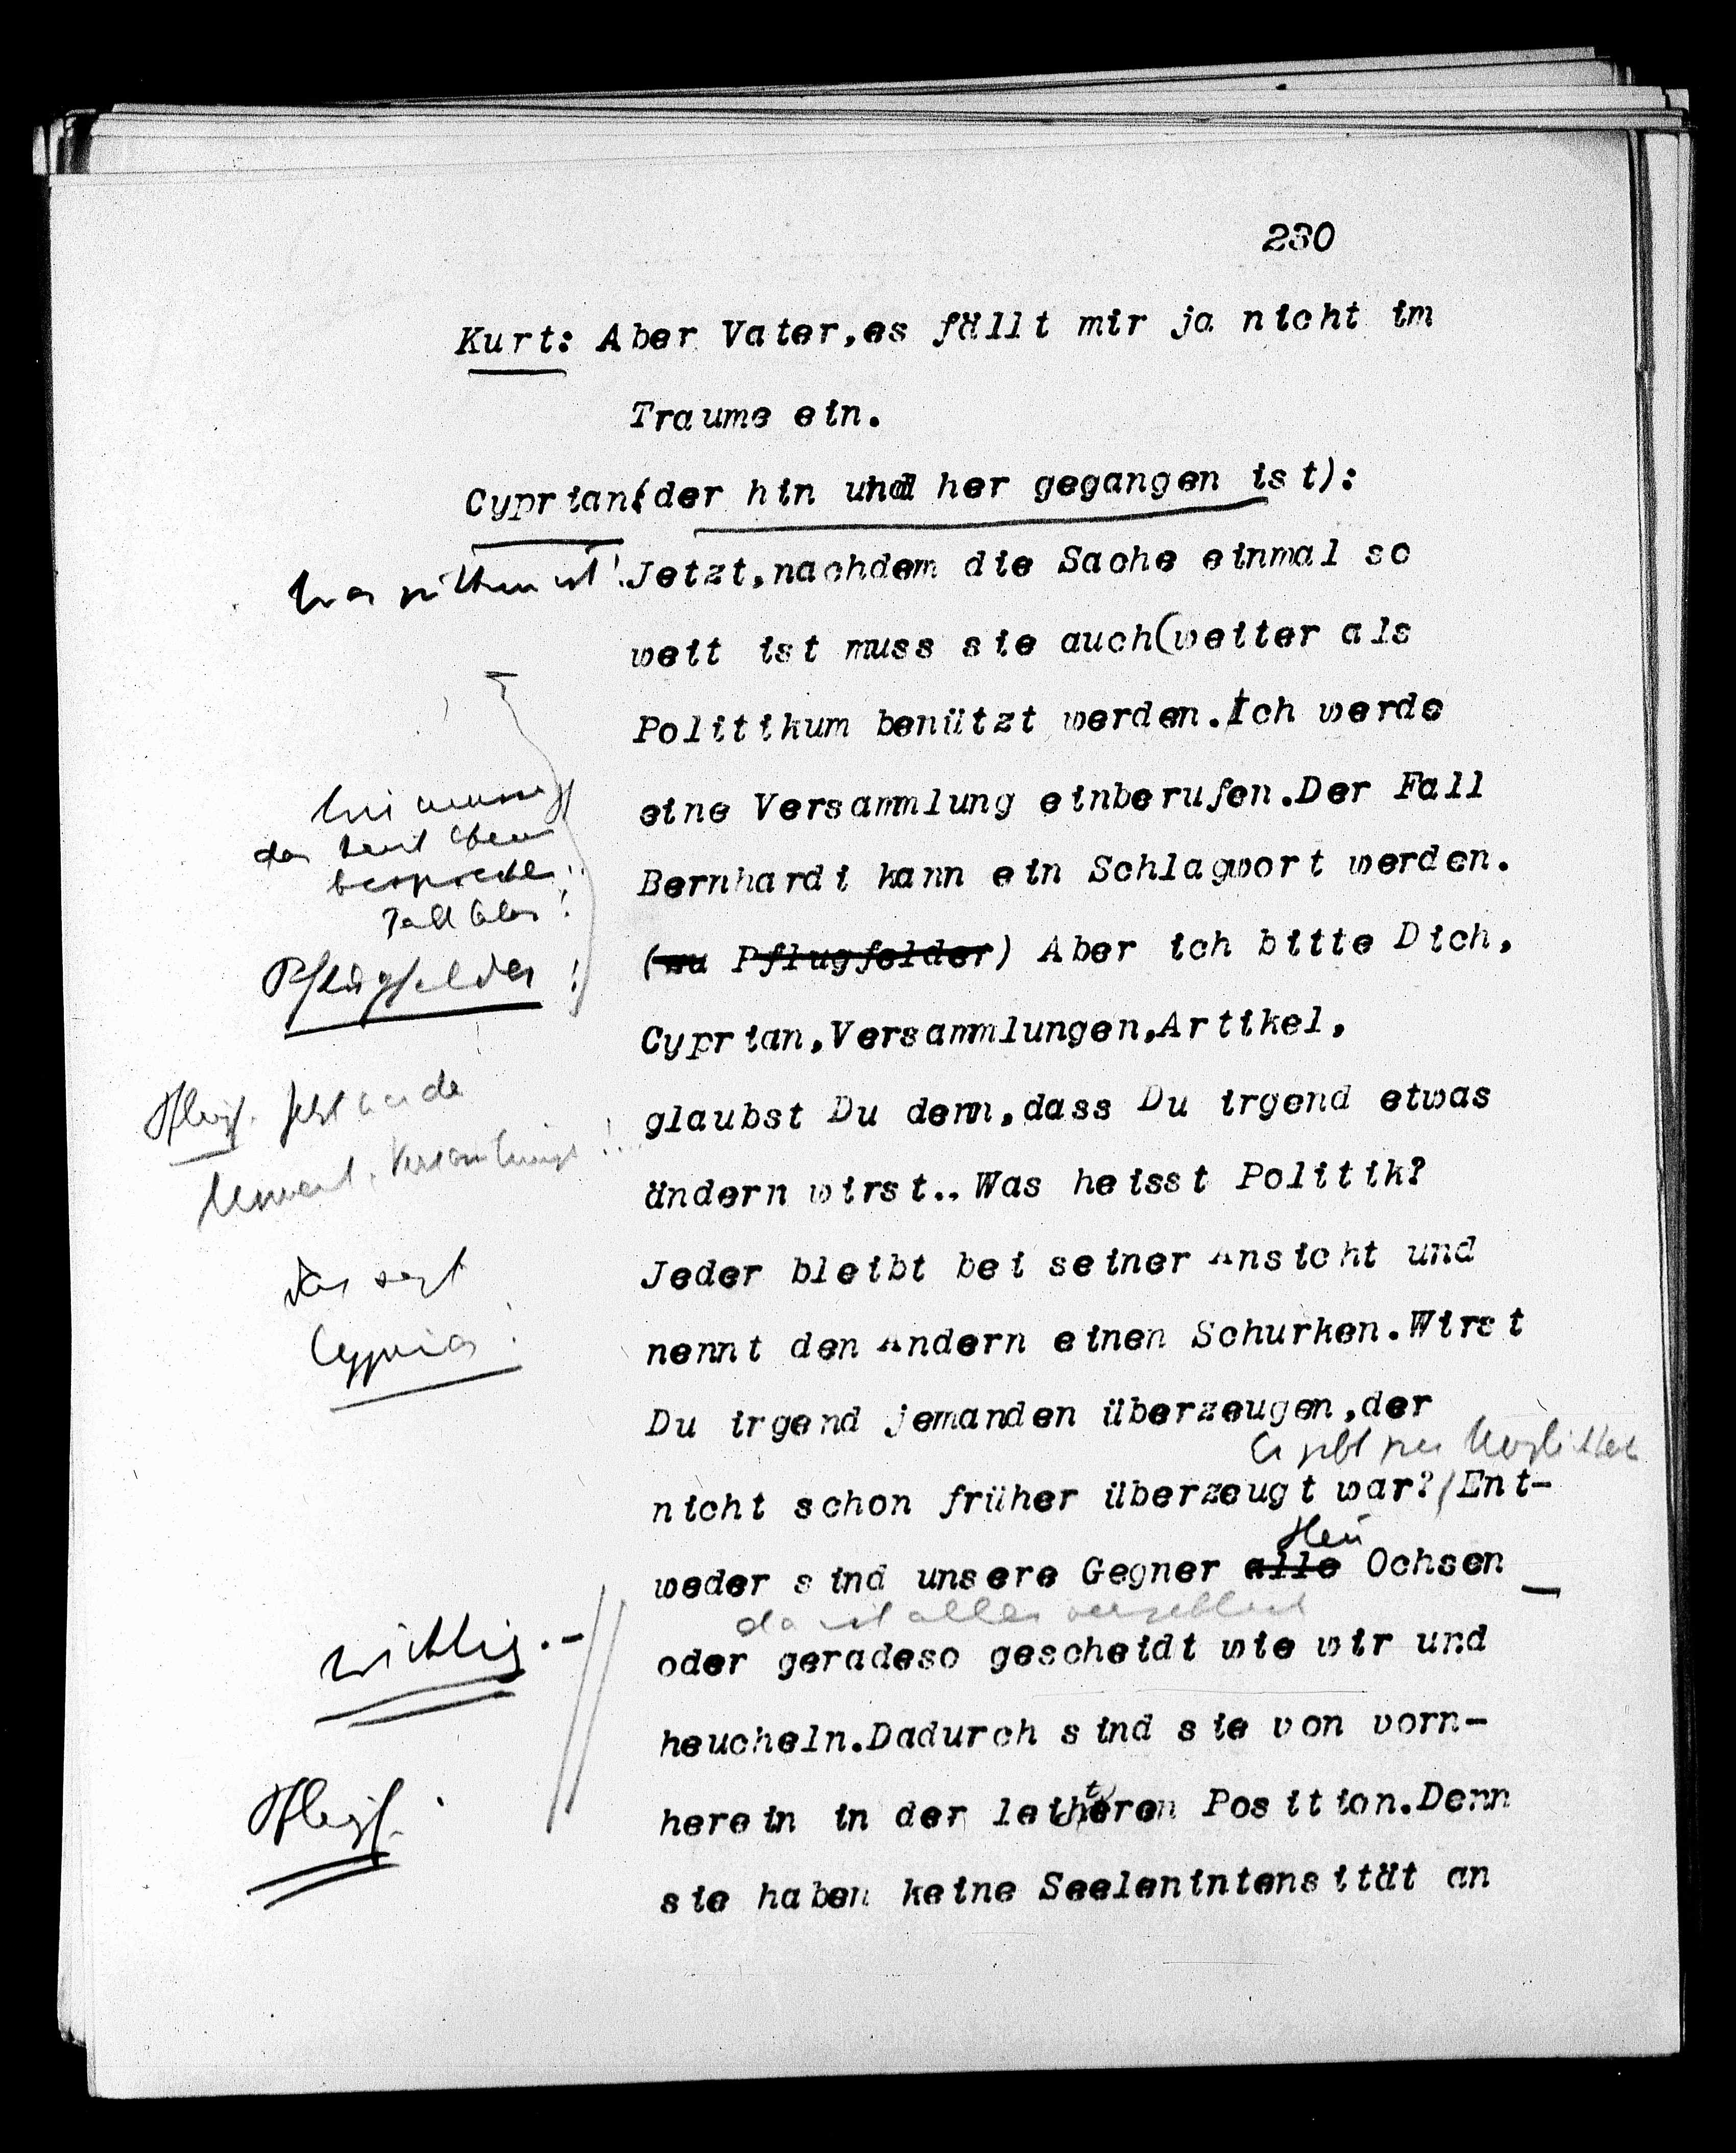 230
Kurt: Aber Vater,es fällt mir ja nicht im
Traume ein.
Cyprian(der hin und her gegangen ist):
Jetzt,nachdem die Sache einmal so
weit ist muss sie auch(weiter als
Politikum benützt werden.Ich werde
eine Versammlung einberufen.Der Fall
Bernhardi kann ein Schlagwort werden.
(zu Pflugfelder) Aber ich bitte Dich,
Pflugfelder!
Cyprian,Versammlungen,Artikel,
glaubst Du denn,dass Du irgend etwas
ändern wirst.. Was heisst Politik?
Jeder bleibt bei seiner Ansicht und
das sagt
nennt den Andern einen Schurken.Wirst
Cyprian!
Du irgend jemanden überzeugen,der
Es gibt
nicht schon früher überzeugt war?/Ent-
weder sind unsere Gegner alle Ochsen
da ist alles vergeblich
oder geradeso gescheidt wie wir und
wichtig.-
heucheln.Dadurch sind sie von vorn-
herein in der leichteren Position.Denn
Pflugf.
sie haben keine Seelenintensität an